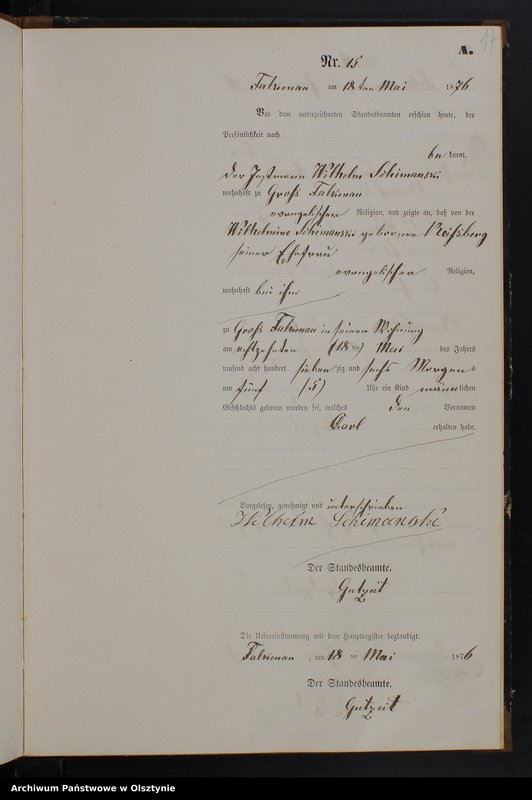 17
A.
Nr. 15
Falkenau am 18ten Mai 1876
Vor dem unterzeichneten Standesbeamten erschien heute, der
Persönlichkeit nach
be kannt,
der Instmann Wilhelm Schimanski
wohnhaft zu Groß Falkenau
evangelischer Religion, und zeigte an, daß von der
Wilhelmine Schimanski geborenen Roßberg
seiner Ehefrau
evangelischer Religion,
wohnhaft bei ihm
zu Groß Falkenau in seiner Wohnung
am achtzehnten (18 ten) Mai des Jahres
tausend acht hundert sieben zig und sechs Morgens
um fünf (5) Uhr ein Kind männlichen
Geschlechts geboren worden sei, welches den Vornamen
Carl erhalten habe.
Vorgelesen, genehmigt und unterschrieben
Wilhelm Schimanski
Der Standesbeamte.
Gutzeit
Die Uebereinstimmung mit dem Hauptregister beglaubigt.
Falkenau, am 18 ten Mai 1876
Der Standesbeamte.
Gutzeit
Archiwum Państwowe w Olsztynie